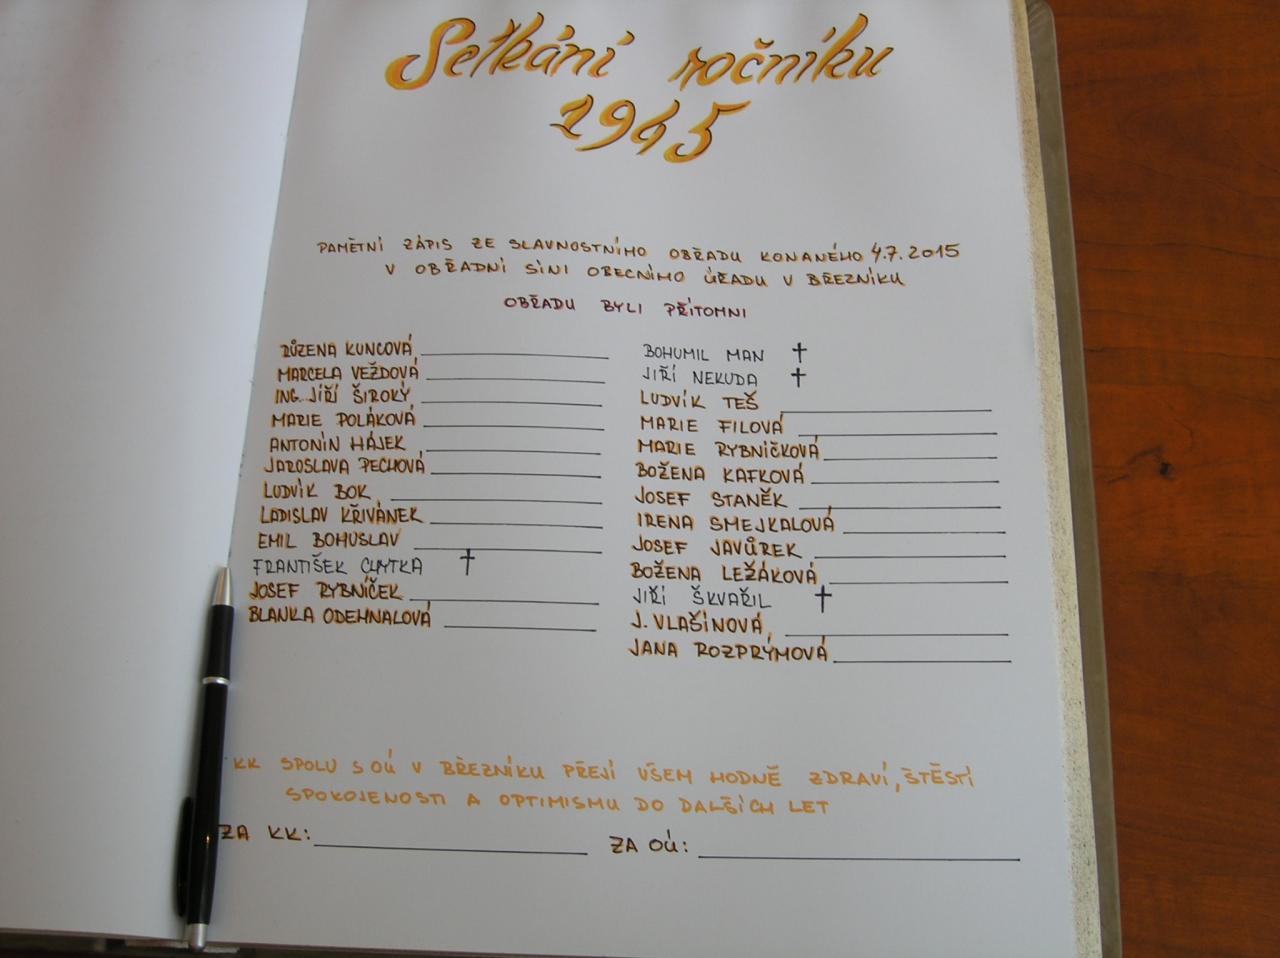 Setkání ročníku
1945
PAMĚTNÍ ZÁPIS ZE SLAVNOSTNÍHO OBŘADU KONANÉHO 4.7.2015
V OBŘADNÍ SÍNI OBECNÍHO ÚŘADU V BŘEZNÍKU
OBŘADU BYLI PŘÍTOMNI
RŮŽENA KUNCOVÁ
MARCELA VEŽDOVÁ
ING. JIŘÍ ŠIROKÝ
MARIE POLÁKOVÁ
ANTONÍN HÁJEK
JAROSLAVA PECHOVÁ
LUDVÍK BOK
LADISLAV KŘIVÁNEK
EMIL BOHUSLAV
FRANTIŠEK CHYTKA †
JOSEF RYBNÍČEK
BLANKA ODEHNALOVÁ
BOHUMIL MAN †
JIŘÍ NEKUDA †
LUDVÍK TEŠ
MARIE FILOVÁ
MARIE RYBNIČKOVÁ
BOŽENA KAFKOVÁ
JOSEF STANĚK
IRENA SMEJKALOVÁ
JOSEF JAVŮREK
BOŽENA LEŽÁKOVÁ
JIŘÍ ŠKVAŘIL †
J. VLAŠÍNOVÁ
JANA ROZPRÝMOVÁ
KK SPOLU S OÚ V BŘEZNÍKU PŘEJÍ VŠEM HODNĚ ZDRAVÍ, ŠTĚSTÍ
SPOKOJENOSTI A OPTIMISMU DO DALŠÍCH LET
ZA KK: ZA OÚ: